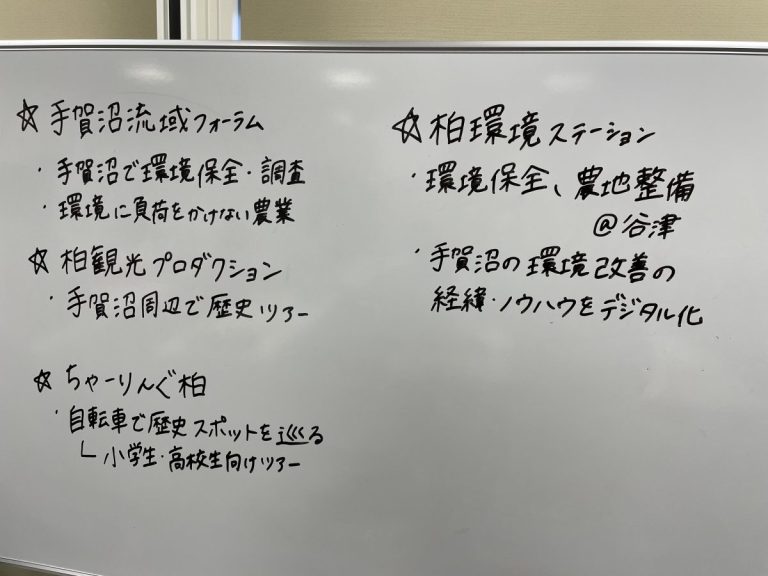 ☆ 手賀沼流域フォーラム
・手賀沼で環境保全・調査
・環境に負荷をかけない農業
☆ 柏観光プロダクション
・手賀沼周辺で歴史ツアー
☆ ちゃーりんぐ柏
・自転車で歴史スポットを巡る
└ 小学生・高校生向けツアー
☆ 柏環境ステーション
・環境保全、農地整備
@谷津
・手賀沼の環境改善の
経緯・ノウハウをデジタル化